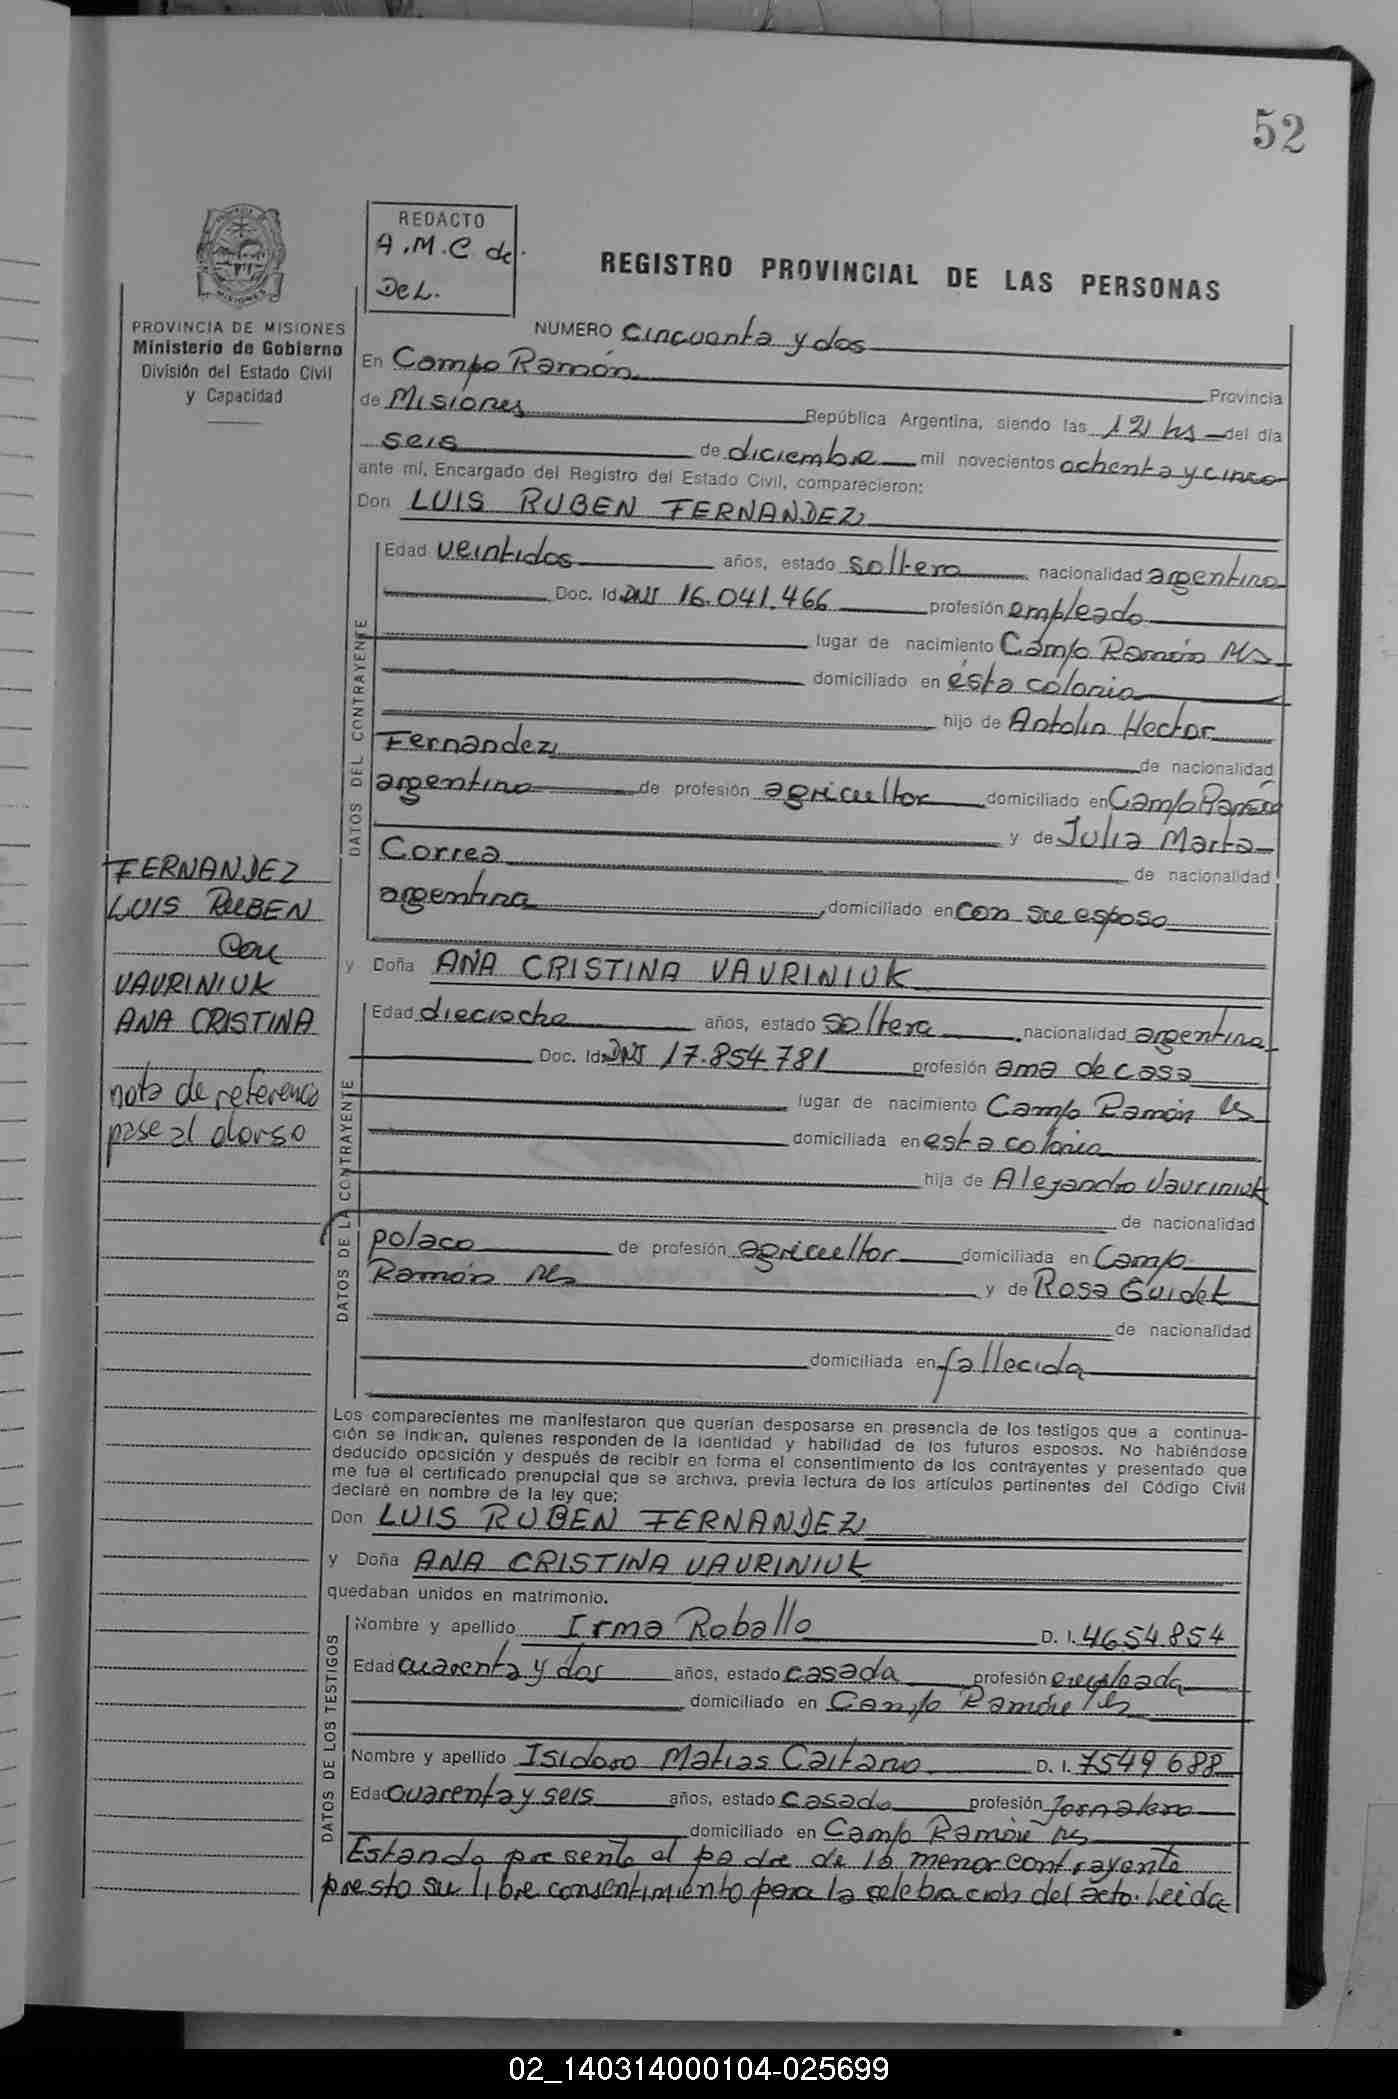 52
REDACTO
A.M.C de
DeL.
REGISTRO PROVINCIAL DE LAS PERSONAS
MISIONES
PROVINCIA DE MISIONES
Ministerio de Gobierno
División del Estado Civil
y Capacidad
NUMERO cincuenta y dos
En Campo Ramón Provincia
de Misiones República Argentina, siendo las 12 hs del día
seis de diciembre mil novecientos ochenta y cinco
ante mí, Encargado del Registro del Estado Civil, comparecieron:
Don LUIS RUBEN FERNANDEZ
DATOS DEL CONTRAYENTE
Edad veintidos años, estado soltero nacionalidad argentino
Doc. Id. DNI 16.041.466 profesión empleado
lugar de nacimiento Campo Ramón Ms
domiciliado en ésta colonia
hijo de Antolin Hector
Fernandez de nacionalidad
argentino de profesión agricultor domiciliado en Campo Ramón
y de Julia Marta
Correa de nacionalidad
argentina, domiciliado en con su esposo
FERNANDEZ
LUIS RUBEN
con
VAURINIUK
ANA CRISTINA
nota de referencia
pase al dorso
y Doña ANA CRISTINA VAURINIUK
DATOS DE LA CONTRAYENTE
Edad dieciocho años, estado soltera nacionalidad argentina
Doc. Id. DNI 17.854.781 profesión ama de casa
lugar de nacimiento Campo Ramón Ms
domiciliada en esta colonia
hija de Alejandro Vauriniuk
de nacionalidad
polaco de profesión agricultor domiciliada en Campo
Ramón Ms y de Rosa Guidek
de nacionalidad
domiciliada en fallecida
Los comparecientes me manifestaron que querían desposarse en presencia de los testigos que a continua-
ción se indican, quienes responden de la identidad y habilidad de los futuros esposos. No habiéndose
deducido oposición y después de recibir en forma el consentimiento de los contrayentes y presentado que
me fue el certificado prenupcial que se archiva, previa lectura de los artículos pertinentes del Código Civil
declaré en nombre de la ley que:
Don LUIS RUBEN FERNANDEZ
y Doña ANA CRISTINA VAURINIUK
quedaban unidos en matrimonio.
DATOS DE LOS TESTIGOS
Nombre y apellido Irma Roballo D. I. 4654.854
Edad cuarenta y dos años, estado casada profesión empleada
domiciliado en Campo Ramón Ms
Nombre y apellido Isidoro Matias Caitano D. I. 7549688
Edad cuarenta y seis años, estado casado profesión Jornalero
domiciliado en Campo Ramón Ms
Estando presente el padre de la menor contrayente
presto su libre consentimiento para la celebracion del acto. Leida
02_140314000104-025699